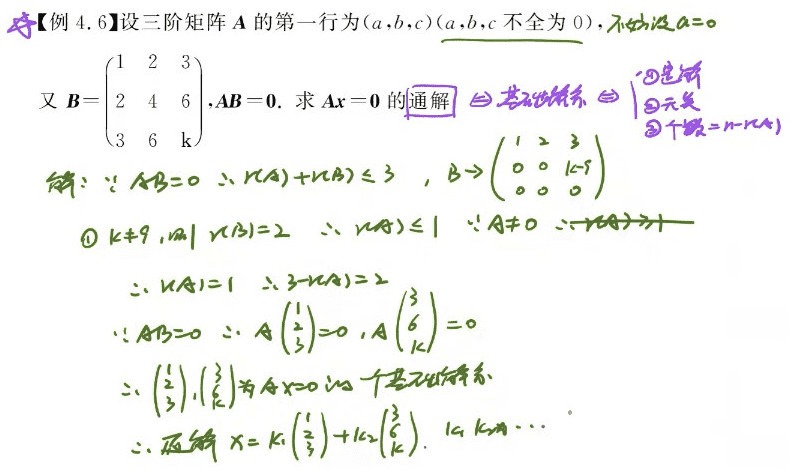 【例 4.6】设三阶矩阵 A 的第一行为(a,b,c)(a,b,c 不全为 0), 不妨设a=0
又 B=(1 2 3; 2 4 6; 3 6 k), AB=0. 求 Ax=0 的通解 ⇔ 基础解系 ⇔ ①是解
②无关
③个数=n-r(A)
解: ∵ AB=0 ∴ r(A)+r(B)≤3 , B→(1 2 3; 0 0 k-9; 0 0 0)
① k≠9, 则 r(B)=2 ∴ r(A)≤1 ∵ A≠0 ∴ r(A)≥1
∴ r(A)=1 ∴ 3-r(A)=2
∵ AB=0 ∴ A(1 2 3)=0, A(3 6 k)=0
∴ (1 2 3), (3 6 k)为Ax=0的一个基础解系
∴ 通解 x=k₁(1 2 3)+k₂(3 6 k). k₁ k₂为…